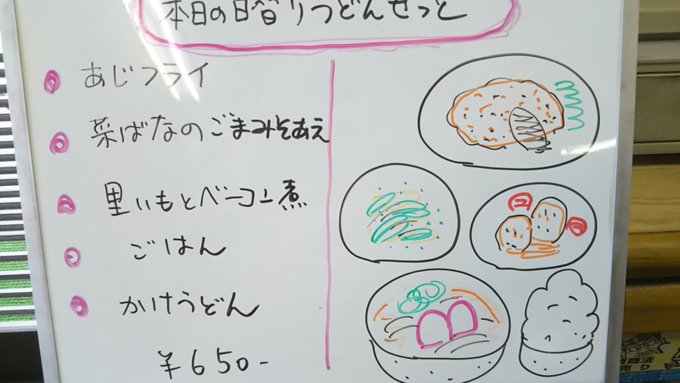 本日の日替りうどんせっと
あじフライ
菜ばなのごまみそあえ
里いもとベーコン煮
ごはん
かけうどん
¥650-